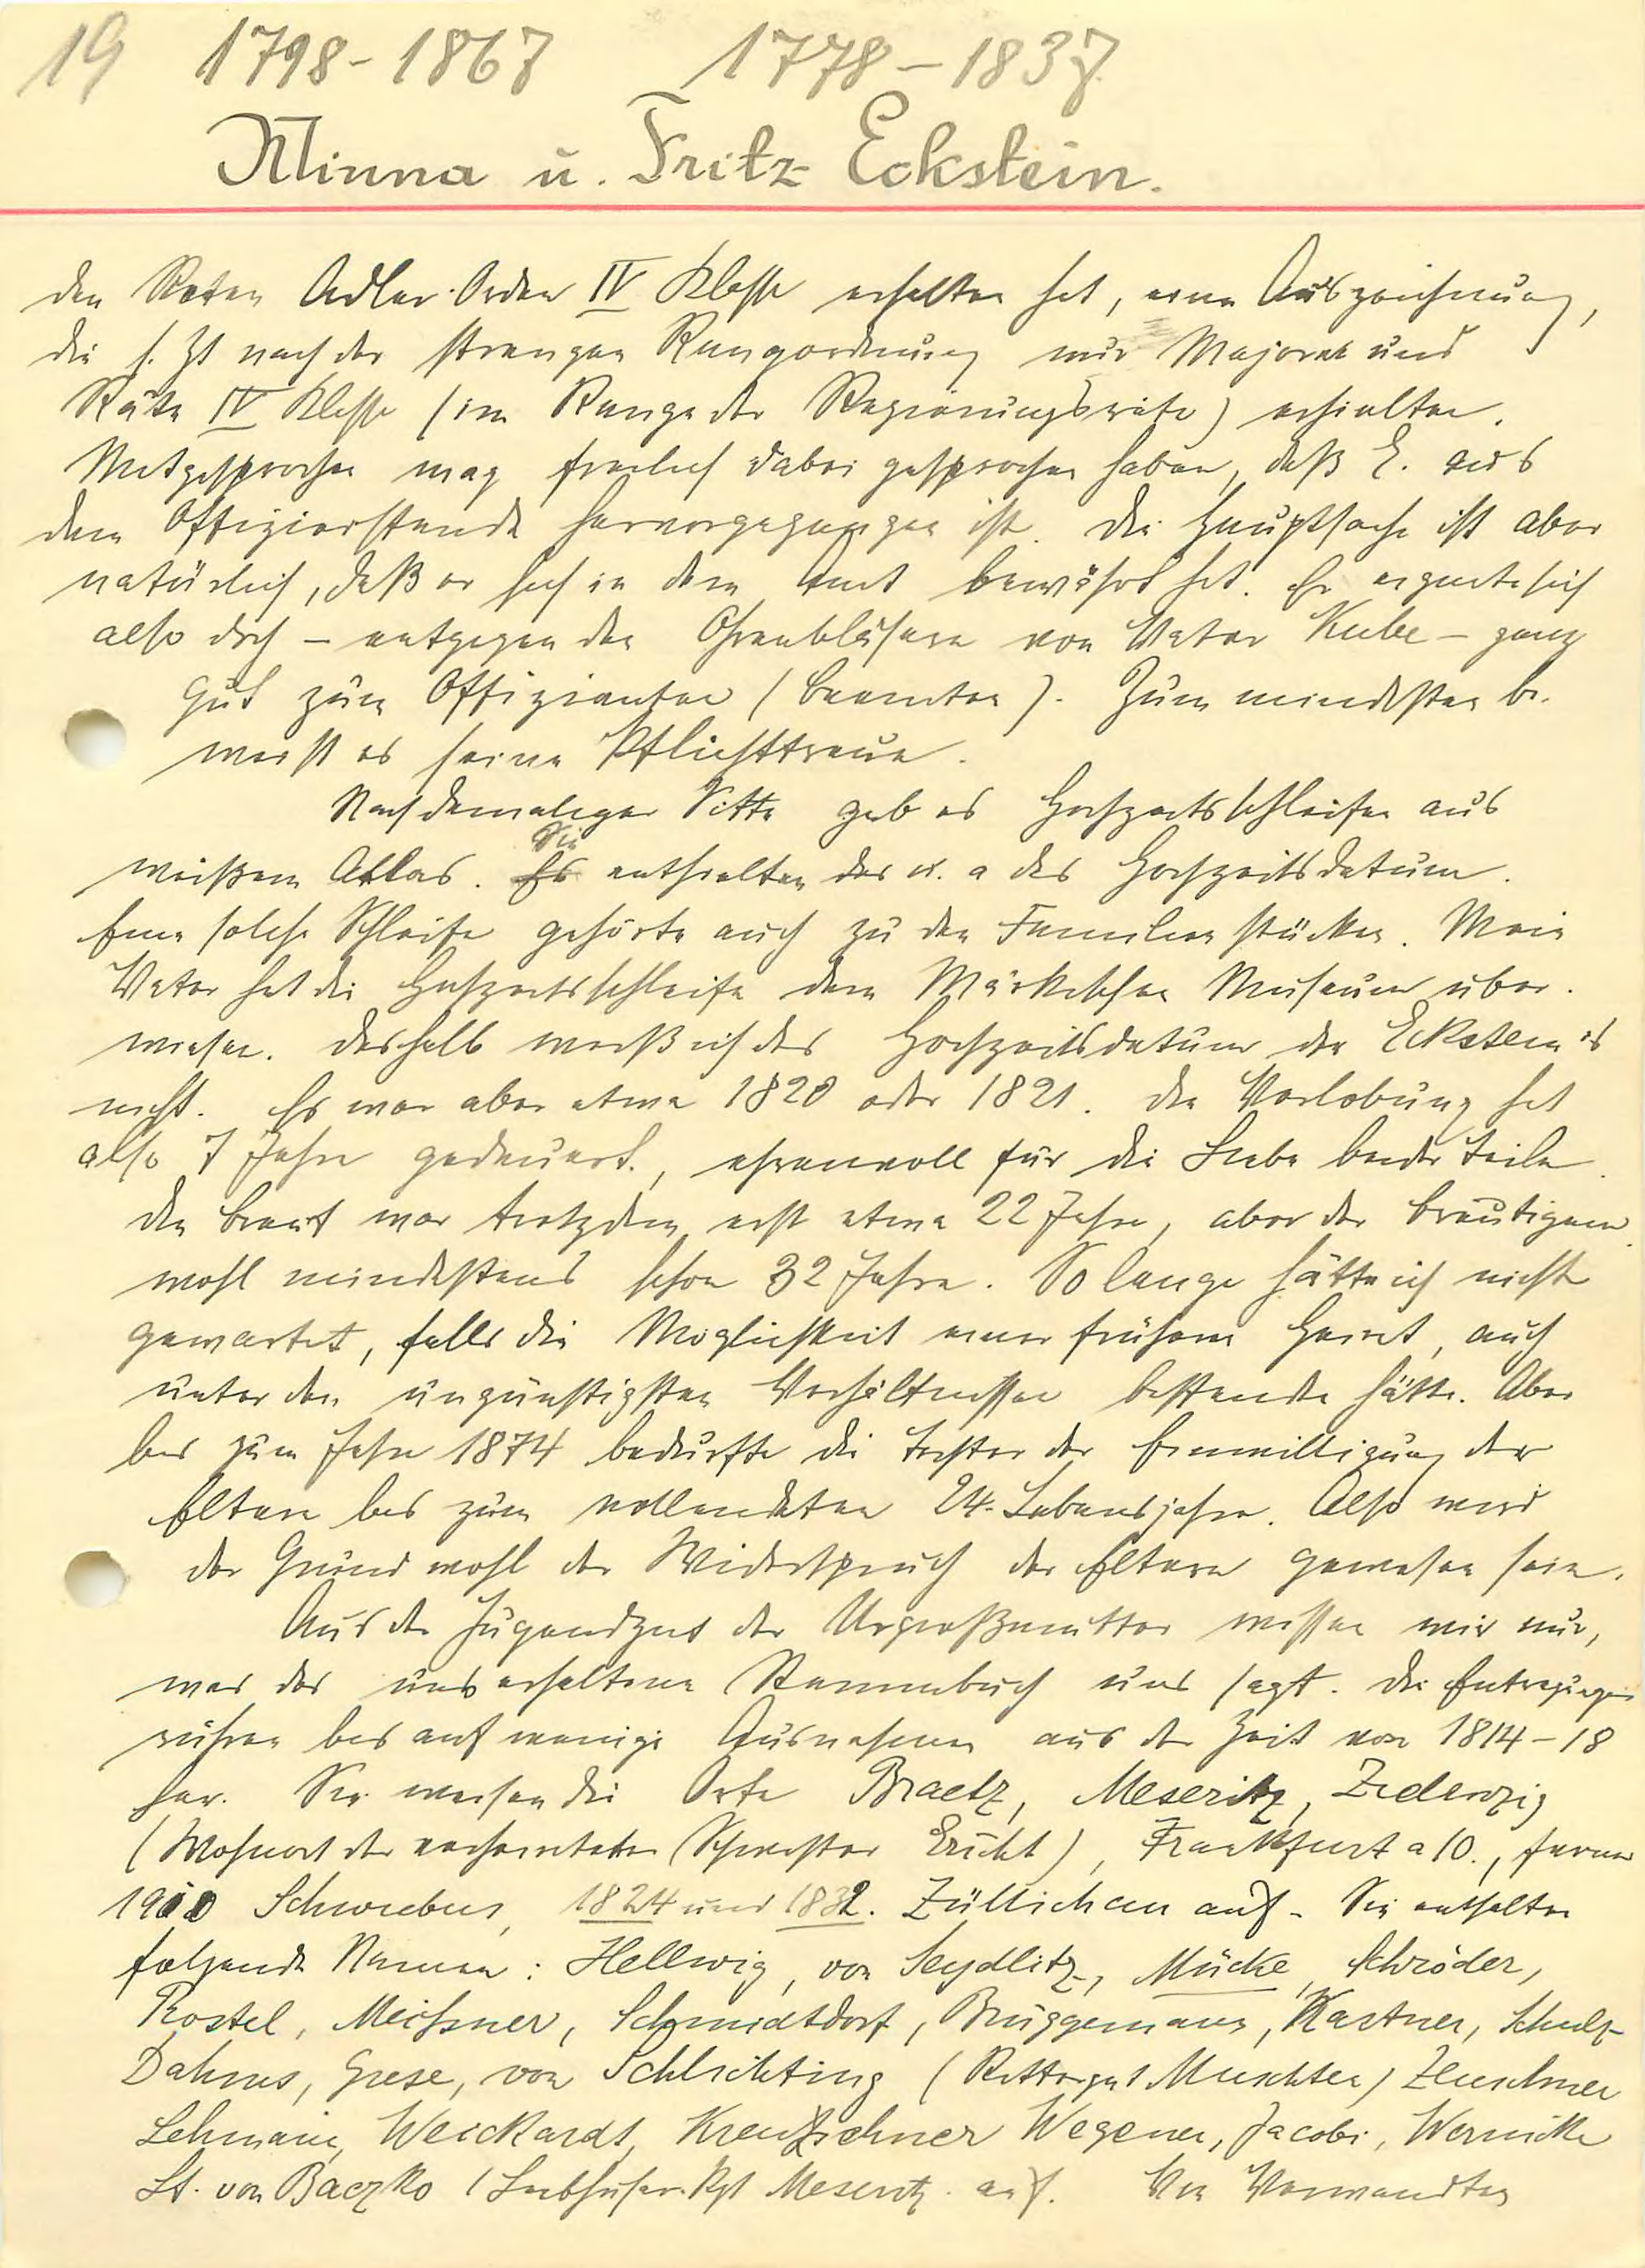 19 1798-1867 1778-1837
Minna u. Fritz Eckstein.
den Roten Adler-Orden IV Klasse erhalten hat, eine Auszeichnung,
die s. Zt nach der strengen Rangordnung nur Majore und
Räte IV Klasse (im Range der Regierungsräte) erhielten.
Mitgesprochen mag freilich dabei gesprochen haben, daß E. aus
dem Offizierstande hervorgegangen ist. Die Hauptsache ist aber
natürlich, daß er sich in dem Amt bewährt hat. Er eignete sich
also doch – entgegen den Ohrenbläsern von Vater Kube – ganz
gut zum Offizianten (Beamten). Zum mindesten be-
weist es seine Pflichttreue.
Nach damaliger Sitte gab es Hochzeitsschleifen aus
weißem Atlas. Sie enthielten das u. a das Hochzeitsdatum.
Eine solche Schleife gehörte auch zu den Familienstücken. Mein
Vater hat die Hochzeitsschleife dem Märkischen Museum über-
wiesen. Deshalb weiß ich das Hochzeitsdatum der Eckstein's
nicht. Es war aber etwa 1820 oder 1821. Die Verlobung hat
also 7 Jahre gedauert, ehrenvoll für die Liebe beider Teile.
Die Braut war trotzdem erst etwa 22 Jahre, aber der Bräutigam
wohl mindestens schon 32 Jahre. So lange hätte ich nicht
gewartet, falls die Möglichkeit einer früheren Heirat, auch
unter den ungünstigsten Verhältnissen bestanden hätte. Aber
bis zum Jahre 1874 bedurfte die Tochter der Einwilligung der
Eltern bis zum vollendeten 24. Lebensjahre. Also wird
der Grund wohl der Widerspruch der Eltern gewesen sein.
Aus der Jugendzeit der Urgroßmutter wissen wir nur,
was das uns erhaltene Stammbuch uns sagt. Die Eintragungen
rühren bis auf wenige Ausnahmen aus der Zeit von 1814-18
her. Sie weisen die Orte Braetz, Meseritz, Zielenzig
(Wohnort der verheirateten Schwester Ericht), Frankfurt a/O., ferner
1910 Schwiebus, 1824 und 1832. Züllichau auf. Sie enthalten
folgende Namen: Hellwig, von Seydlitz, Mücke, Schröder,
Rostel, Meissner, Schmidtsdorf, Brüggemann, Kastner, Schulz
Dahms, Griese, von Schlichting (Rittergut Muschten) Zeuschner
Lehmann, Weickardt, Kreutzichner Wegener, Jacobi, Wernicke
Lt. von Baczko (Leibhusar. Rgt Meseritz. auf. Von Verwandten